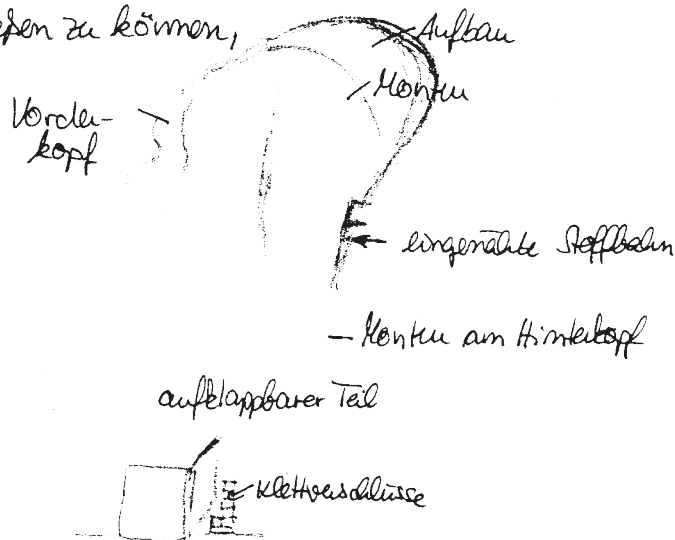 zu können,
Aufbau
Montur
Vorder-
kopf
eingenähte Stoffbahn
– Montur am Hinterkopf
aufklappbarer Teil
Klettverschlüsse